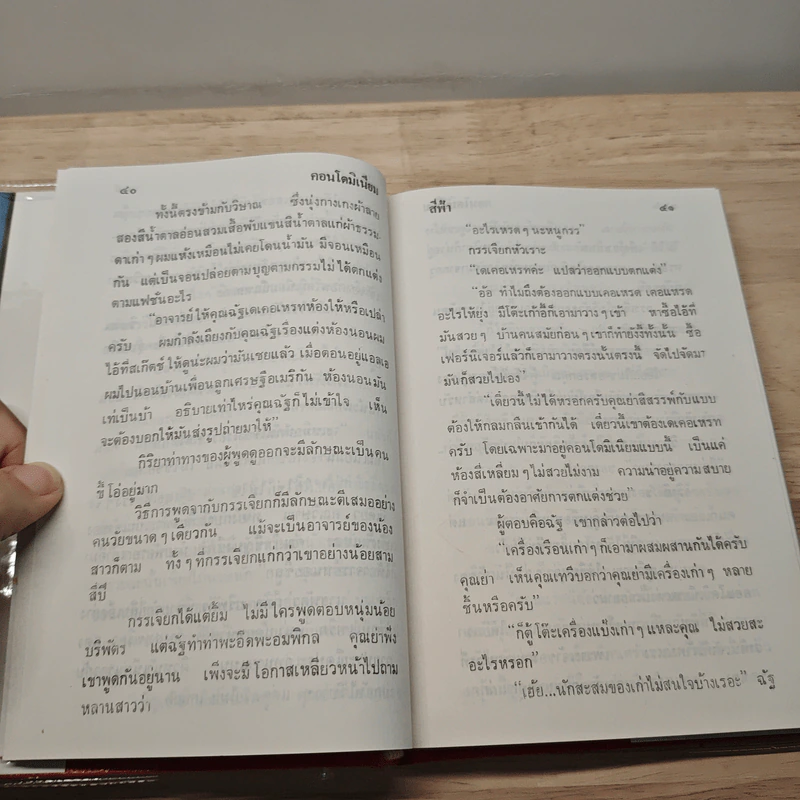 ๔๐
คอนโดมิเนียม
ทั้งนี้ตรงข้ามกับวิษาณ ซึ่งนุ่งกางเกงผ้าลาย
สองสีน้ำตาลอ่อนสวมเสื้อพับแขนสีน้ำตาลแก่ผ้าธรรม-
ดาเก่าๆ ผมแห้งเหมือนไม่เคยโดนน้ำมัน มีจอนเหมือน
กัน แต่เป็นจอนปล่อยตามบุญตามกรรมไม่ได้ตกแต่ง
ตามแฟชั่นอะไร
“อาจารย์ให้คุณฉัฐเดเคอเหรทห้องให้หรือเปล่า
ครับ ผมกำลังเถียงกับคุณฉัฐเรื่องแต่งห้องนอนผม
ไอ้ที่สเก๊ตช์ให้ดูน่ะผมว่ามันเชยแล้ว เมื่อตอนอยู่แอลเอ
ผมไปนอนบ้านเพื่อนลูกเศรษฐีอเมริกัน ห้องนอนมัน
เท่เป็นบ้า อธิบายเท่าไหร่คุณฉัฐก็ไม่เข้าใจ เห็น
จะต้องบอกให้มันส่งรูปถ่ายมาให้”
กิริยาท่าทางของผู้พูดดูออกจะมีลักษณะเป็นคน
ขี้โอ่อยู่มาก
วิธีการพูดจากับกรรเจียกก็มีลักษณะตีเสมออย่าง
คนวัยขนาดๆ เดียวกัน แม้จะเป็นอาจารย์ของน้อง
สาวก็ตาม ทั้งๆ ที่กรรเจียกแก่กว่าเขาอย่างน้อยสาม
สี่ปี
กรรเจียกได้แต่ยิ้ม ไม่มีใครพูดตอบหนุ่มน้อย
บริพัตร แต่ฉัฐทำท่าพะอืดพะอมพิกล คุณย่าฟัง
เขาพูดกันอยู่นาน เพิ่งจะมีโอกาสเหลียวหน้าไปถาม
หลานสาวว่า
สีฟ้า
๔๑
“อะไรเหรดๆ นะหนูกรร”
กรรเจียกหัวเราะ
“เดเคอเหรทค่ะ แปลว่าออกแบบตกแต่ง”
“อ้อ ทำไมถึงต้องออกแบบเคอเหรด เคอแหรด
อะไรให้ยุ่ง มีโต๊ะเก้าอี้ก็เอามาวางๆ เข้า หาซื้อไอ้ที่
มันสวยๆ บ้านคนสมัยก่อนๆ เขาก็ทำยังงี้ทั้งนั้น ซื้อ
เฟอร์นิเจอร์แล้วก็เอามาวางตรงนั้นตรงนี้ จัดไปจัดมา
มันก็สวยไปเอง”
“เดี๋ยวนี้ไม่ได้หรอกครับคุณย่าสีสรรพ์กับแบบ
ต้องให้กลมกลืนเข้ากันได้ เดี๋ยวนี้เขาต้องเดเคอเหรท
ครับ โดยเฉพาะมาอยู่คอนโดมิเนียมแบบนี้ เป็นแค่
ห้องสี่เหลี่ยมๆ ไม่สวยไม่งาม ความน่าอยู่ความสบาย
ก็จำเป็นต้องอาศัยการตกแต่งช่วย”
ผู้ตอบคือฉัฐ เขากล่าวต่อไปว่า
“เครื่องเรือนเก่าๆ ก็เอามาผสมผสานกันได้ครับ
คุณย่า เห็นคุณเทวีบอกว่าคุณย่ามีเครื่องเก่าๆ หลาย
ชิ้นหรือครับ”
“ก็ตู้โต๊ะเครื่องแป้งเก่าๆ แหละคุณ ไม่สวยสะ
อะไรหรอก”
“เฮ้ย...นักสะสมของเก่าไม่สนใจบ้างเรอะ” ฉัฐ